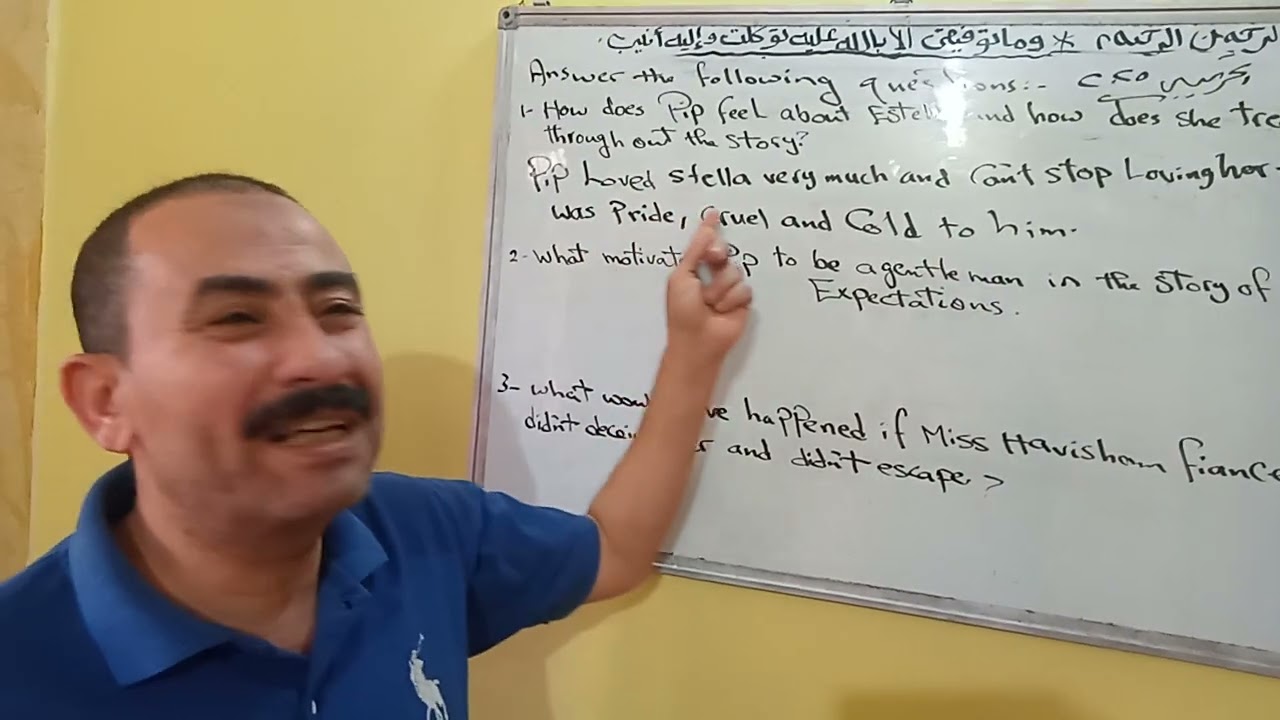 الرحمن الرحيم * وما توفيقى الا بالله عليه توكلت وإليه أنيب.
Answer the following questions:-
1- How does Pip feel about Estell and how does she tre
throughout the story?
Pip Loved stella very much and Can't stop Loving her.
was Pride, Cruel and Cold to him.
2- What motivat Pip to be a gentleman in the story of
Expectations.
3- What wou ve happened if Miss Havisham fiance
didn't decei r and didn't escape?